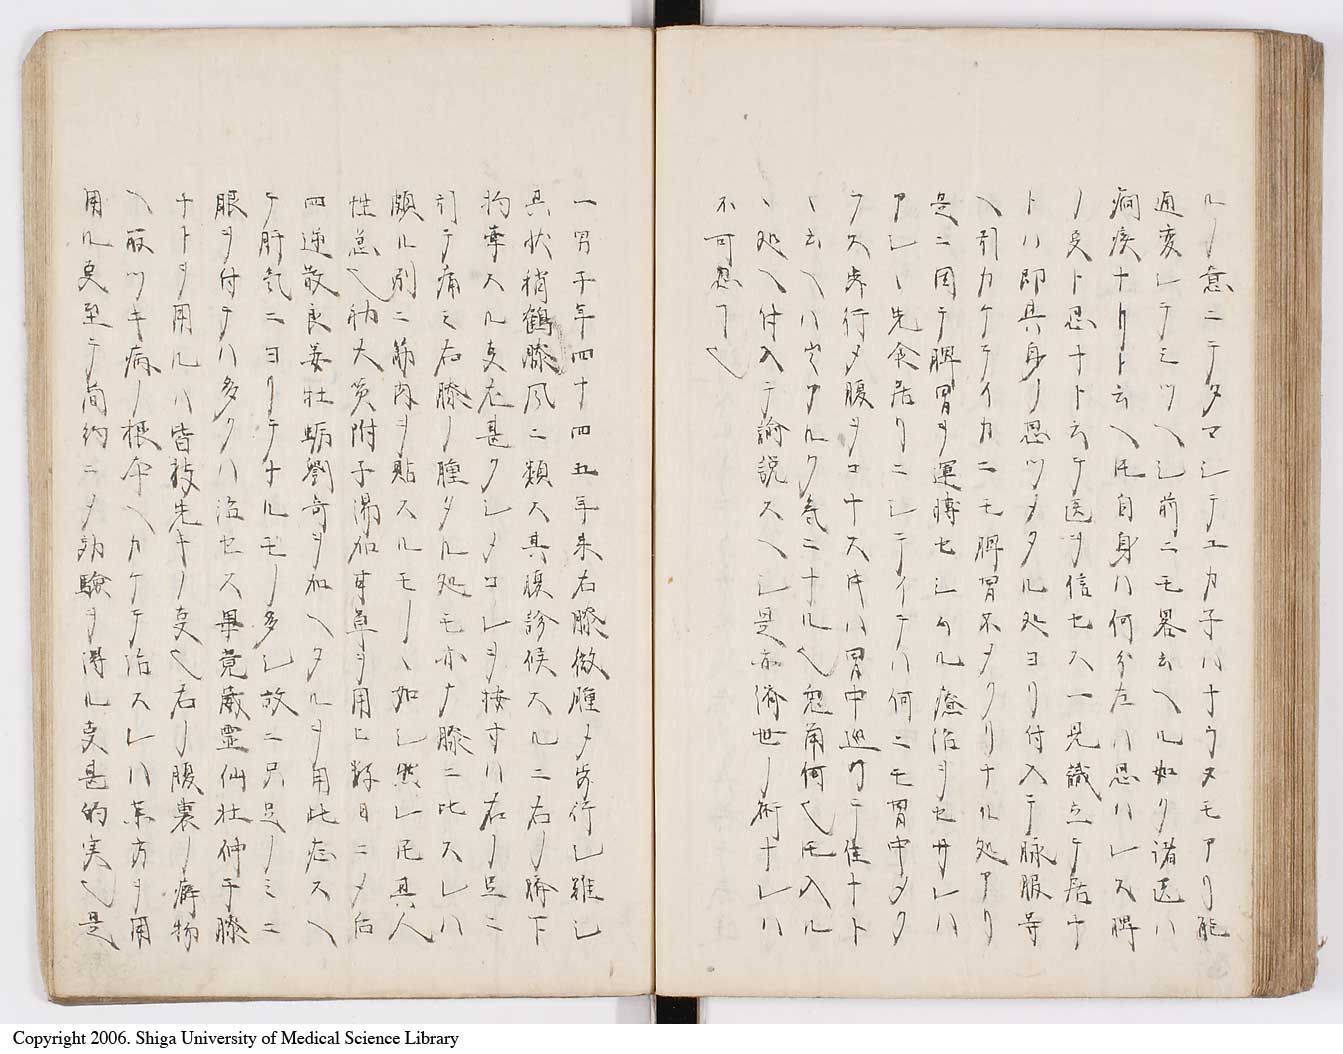 ルノ意ニテタマシテユカ子ハナウヌモアリ能
通変シテミツヘシ前ニモ畧云ヘル如ク諸医ハ
痼疾ナリト云ヘ𪜈自身ハ何分左ハ思ハレス脾
ノ叓ト思ナト云テ医ヲ信セス一見識立テ居ナ
トハ即其身ノ思ツメタル処ヨリ付入テ脉服等
ヘ引カケテイカニモ脾胃不タクリナル処アリ
是ニ因テ脾胃ヲ運轉セシムル療治ヲセサレハ
アシヽ先食居リニシテイテハ何ニモ胃中タク
ラス歩行メ腹ヲコナス片ハ胃中巡リテ佳ナト
ヽ云ヘハ定アルク気ニナル也鬼角何也𪜈入ル
ヽ処ヘ付入テ諭説スヘシ是亦済世ノ術ナレハ
不可忽丁也
一男子年四十四五年来右膝微腫メ歩行シ難シ
其状稍鶴膝風ニ類ス其腹診候スルニ右ノ臍下
拘攣スル叓尤甚クシメコレヲ按寸ハ右ノ足ニ
引テ痛ミ右膝ノ腫タル処モ亦ナ膝ニ比スレハ
頗ル別ニ筋肉ヲ貼スルモノヽ如シ然レ𪜈其人
性急也初大黄附子湯加甘草ヲ用ヒ数日ニメ后
四逆散良姜牡蛎劉奇ヲ加ヘタルヲ用此症スヘ
テ肝気ニヨリテナルモノ多シ故ニ只足ノミニ
眼ヲ付テハ多クハ治セス畢竟威霊仙牡仲干膝
ナトヲ用ルハ皆枝先キノ叓也右ノ腹裏ノ癖物
ヘ取ツキ病ノ根本ヘカケテ治スレハ薬方ヲ用
用ル叓至テ簡約ニメ効驗ヲ得ル叓甚的実也是